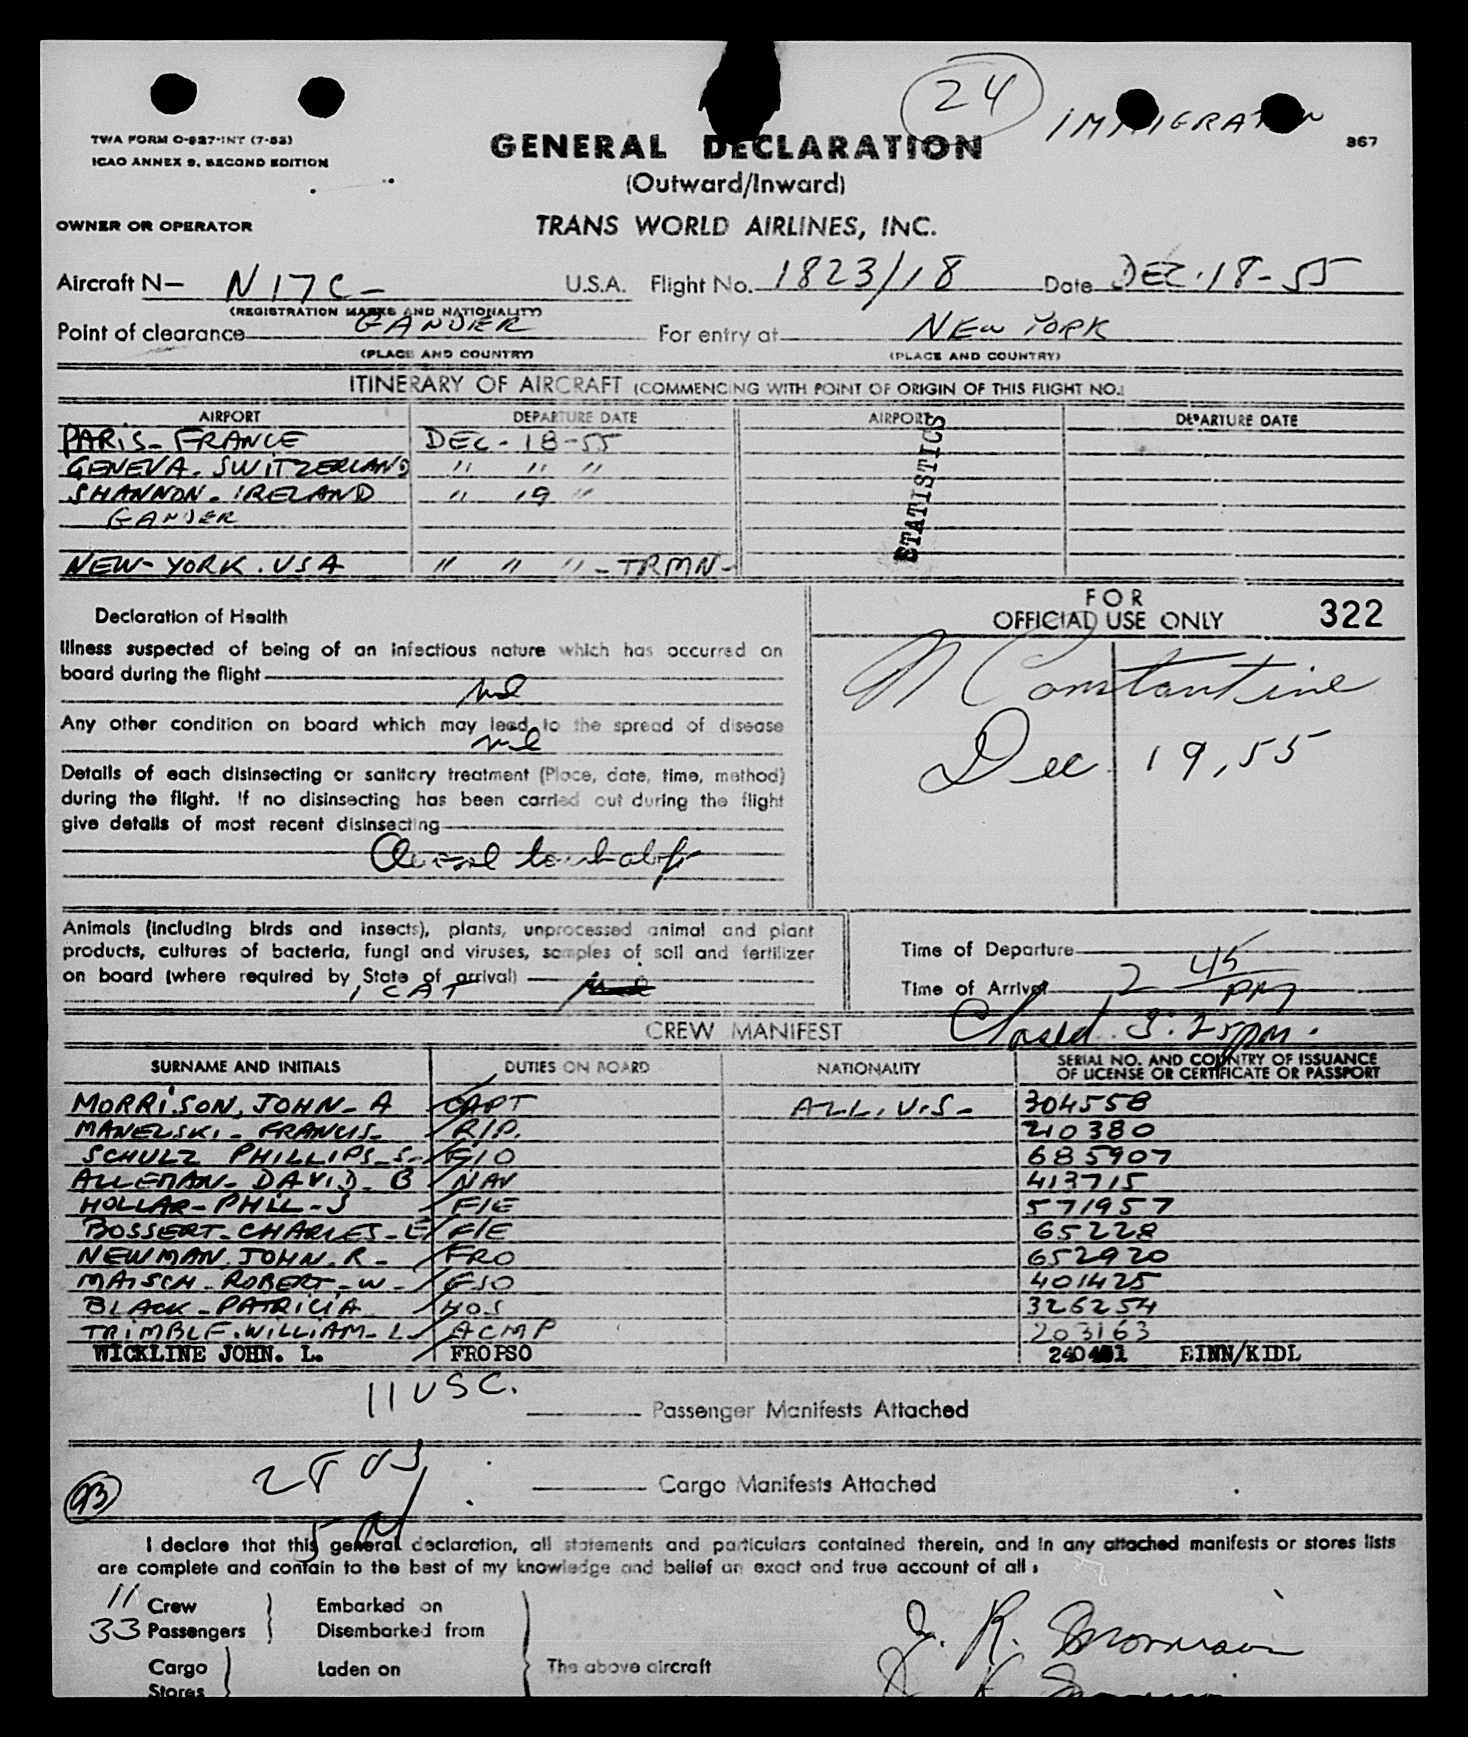 24
IMMIGRATION
TWA FORM O-927-INT (7-53)
ICAO ANNEX 9, SECOND EDITION
GENERAL DECLARATION
867
(Outward/Inward)
OWNER OR OPERATOR
TRANS WORLD AIRLINES, INC.
Aircraft N— N17C- U.S.A. Flight No. 1823/18 Date DEC.18-55
(REGISTRATION MARKS AND NATIONALITY)
Point of clearance GANDER For entry at NEW YORK
(PLACE AND COUNTRY) (PLACE AND COUNTRY)
ITINERARY OF AIRCRAFT (COMMENCING WITH POINT OF ORIGIN OF THIS FLIGHT NO.)
AIRPORT DEPARTURE DATE AIRPORT DEPARTURE DATE
PARIS-FRANCE DEC-18-55
GENEVA. SWITZERLAND " " "
SHANNON-IRELAND " 19 "
GANDER
NEW-YORK.USA " " " -TRMN-
STATISTICS
Declaration of Health
Illness suspected of being of an infectious nature which has occurred on
board during the flight
nil
Any other condition on board which may lead to the spread of disease
nil
Details of each disinsecting or sanitary treatment (Place, date, time, method)
during the flight. If no disinsecting has been carried out during the flight
give details of most recent disinsecting
FOR
OFFICIAL USE ONLY 322
N Constantine
Dec 19,55
Animals (including birds and insects), plants, unprocessed animal and plant
products, cultures of bacteria, fungi and viruses, samples of soil and fertilizer
on board (where required by State of arrival)
1 CAT
Time of Departure
Time of Arrival 2 45 PM
Closed 3:25pm.
CREW MANIFEST
SURNAME AND INITIALS DUTIES ON BOARD NATIONALITY SERIAL NO. AND COUNTRY OF ISSUANCE
OF LICENSE OR CERTIFICATE OR PASSPORT
MORRISON, JOHN-A CAPT ALL.U.S- 304558
MANELSKI-FRANCIS- R/P. 210380
SCHULZ PHILLIPS-S- F/O 685907
ALLEMAN-DAVID-B NAV 413715
HOLLAR-PHIL-J F/E 571957
BOSSERT-CHARLES-E F/E 65228
NEWMAN.JOHN.R- FRO 652920
MAISCH-ROBERT-W- FSO 401425
BLACK-PATRICIA HOS 326254
TRIMBLE.WILLIAM-L ACMP 203163
WICKLINE JOHN. L. FROPSO EINN/KIDL
11 USC.
Passenger Manifests Attached
28 US
Cargo Manifests Attached
I declare that this general declaration, all statements and particulars contained therein, and in any attached manifests or stores lists
are complete and contain to the best of my knowledge and belief an exact and true account of all :
11 Crew Embarked on
33 Passengers Disembarked from
Cargo Laden on The above aircraft
Stores
J. R. Morrison